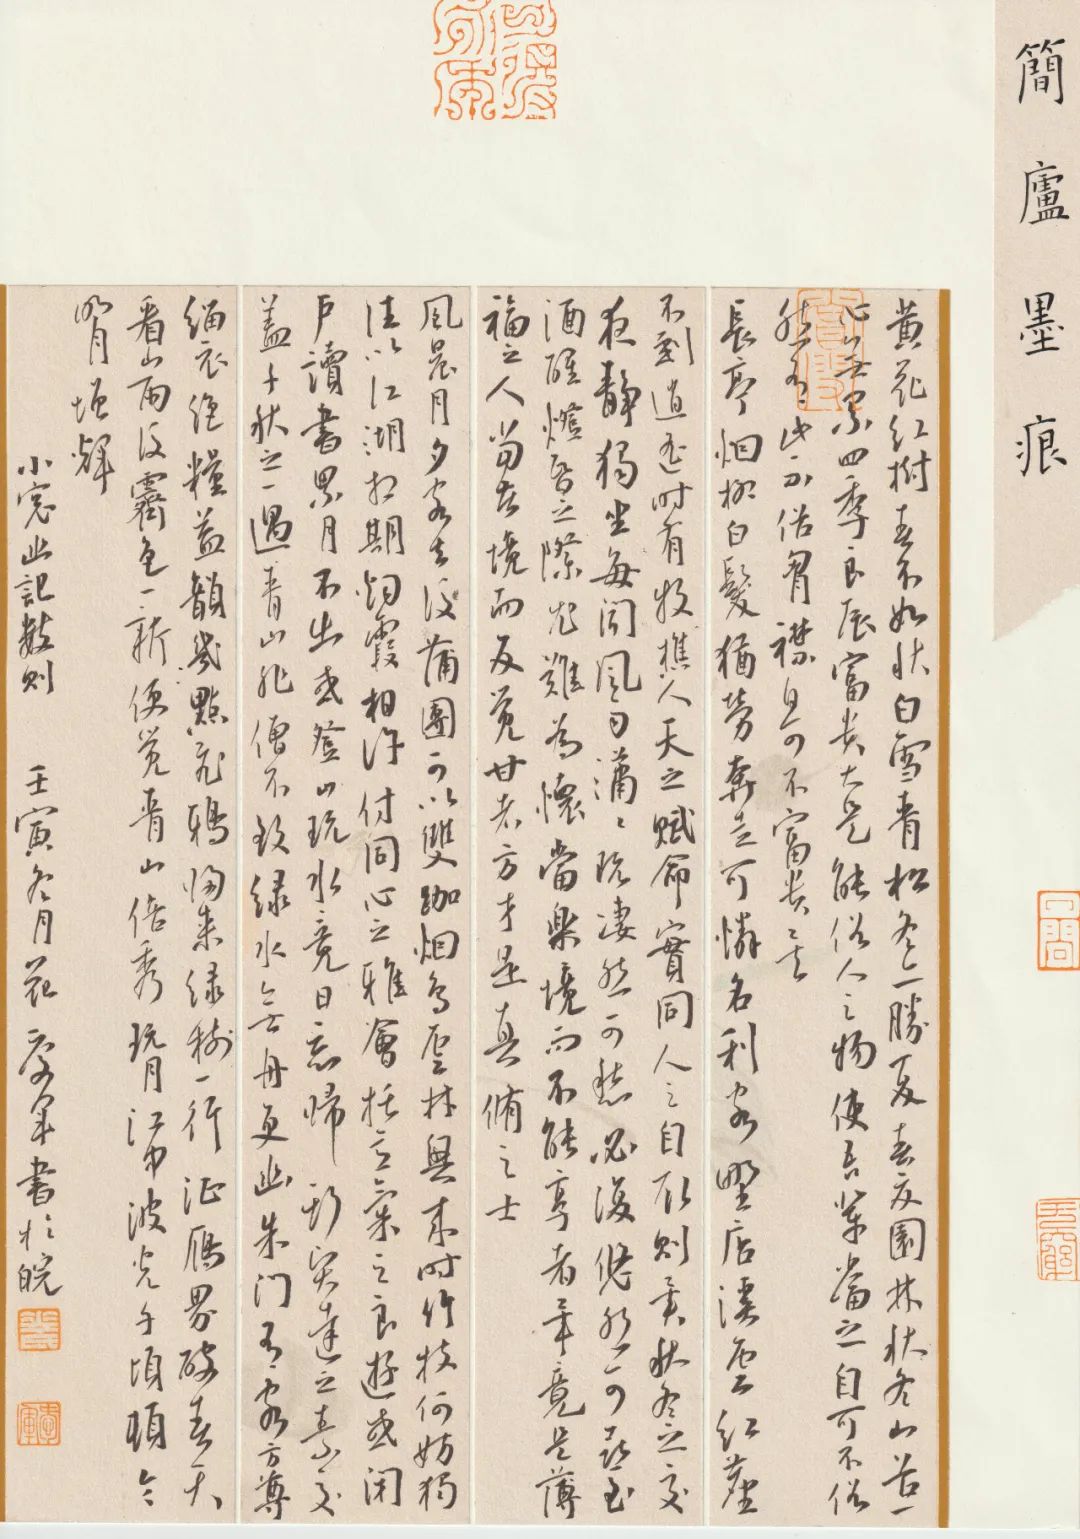 簡廬墨痕
黄花红樹春不如秋白雪青松冬亦勝夏春夏園林秋冬山谷一
心無累四季良辰富貴大是能俗人之物使吾輩當之自可不俗
然有此不俗胷襟自可不富貴矣
長亭烟柳白髮猶勞奔走可憐名利客野店溪雲红塵
不到逍遥時有牧樵人天之賦命實同人之自取則異秋冬之交
夜静獨坐每聞風雨瀟瀟既凄然可愁亦復悠然可喜至
酒醒燈昏之際尤難為懷當樂境而不能享者畢竟是薄
福之人當苦境而反覺甘者方才是真脩之士
風晨月夕客去後蒲團可以雙跏烟島雲林興来時竹杖何妨獨
往以江湖相期烟霞相許付同心之雅會托意氣之良遊或闭
户讀書累月不出或登山玩水竟日忘歸斯賢達之素交
蓋千秋之一遇青山非僧不致绿水無舟更幽朱门有客方尊
缁衣绝糧益韻幾點飛鴉归来绿樹一行征雁界破春天
看山雨後霽色一新便覺青山倍秀玩月江中波光千頃頓令
明月增輝
小窓幽記數則 壬寅冬月 書於皖